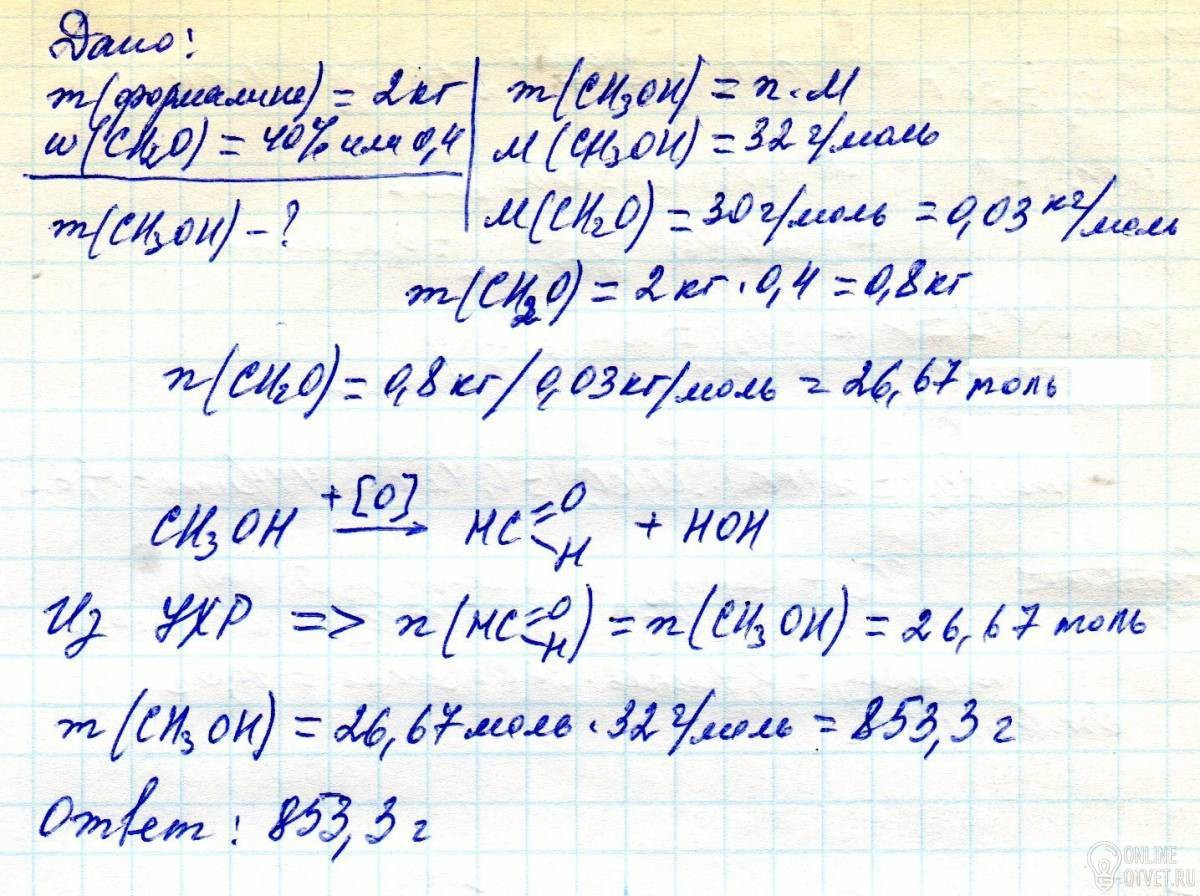 Дано:
m(формалина) = 2 кг
w(CH₂O) = 40% или 0,4
m(CH₃OH) - ?
m(CH₃OH) = n·M
M(CH₃OH) = 32 г/моль
M(CH₂O) = 30 г/моль = 0,03 кг/моль
m(CH₂O) = 2 кг · 0,4 = 0,8 кг
n(CH₂O) = 0,8 кг / 0,03 кг/моль = 26,67 моль
CH₃OH +[O] → HC=O -H + HOH
Из УХР => n(HC=O -H) = n(CH₃OH) = 26,67 моль
m(CH₃OH) = 26,67 моль · 32 г/моль = 853,3 г
Ответ: 853,3 г
ONLINE
OTVET.RU